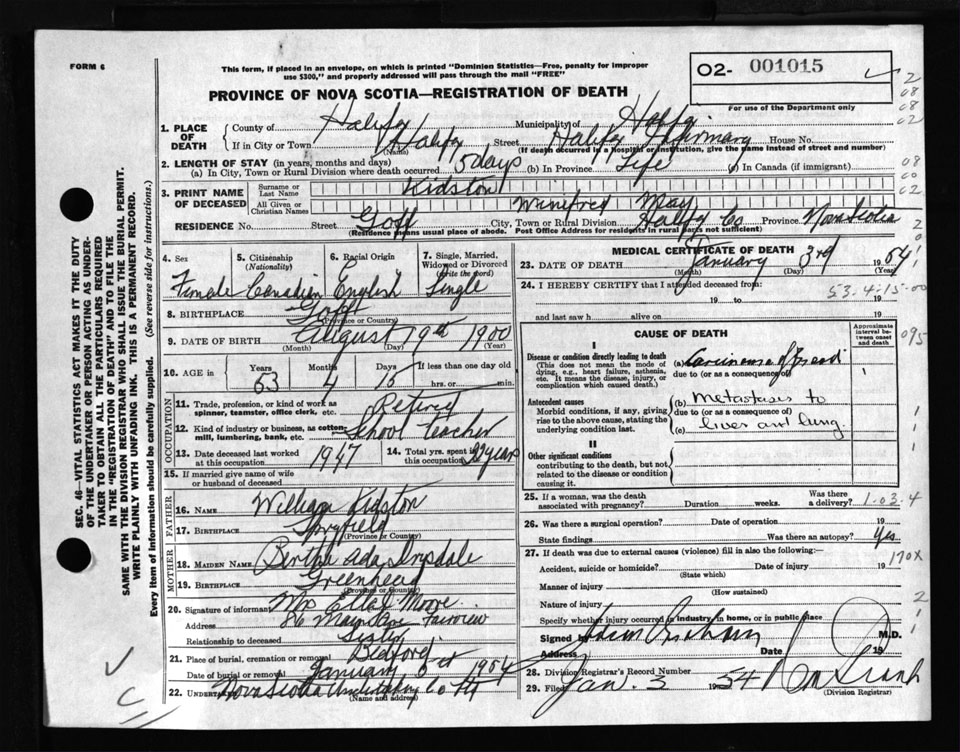 FORM 6
This form, if placed in an envelope, on which is printed "Dominion Statistics—Free, penalty for improper
use $300," and properly addressed will pass through the mail "FREE"
O2- 001015
For use of the Department only
PROVINCE OF NOVA SCOTIA—REGISTRATION OF DEATH
1. PLACE OF DEATH
County of Halifax Municipality of Halifax
If in City or Town Halifax (Name) Street Halifax Infirmary House No.
(If death occurred in a Hospital or Institution, give the name instead of street and number)
2. LENGTH OF STAY (in years, months and days)
(a) In City, Town or Rural Division where death occurred 5 days (b) In Province Life (c) In Canada (if immigrant)
3. PRINT NAME OF DECEASED
Surname or Last Name Kidston
All Given or Christian Names Winifred May
RESIDENCE No. Street Goff City, Town or Rural Division Halifax Co Province Nova Scotia
(Residence means usual place of abode. Post Office Address for residents in rural parts not sufficient)
4. Sex Female
5. Citizenship (Nationality) Canadian
6. Racial Origin English
7. Single, Married, Widowed or Divorced (Write the word) Single
8. BIRTHPLACE Goff
(Province or Country)
9. DATE OF BIRTH August 19th 1900
(Month) (Day) (Year)
10. AGE in Years 63 Months 4 Days 15 If less than one day old
hrs. or min.
OCCUPATION
11. Trade, profession, or kind of work as spinner, teamster, office clerk, etc. Retired
12. Kind of industry or business, as cotton mill, lumbering, bank, etc. School teacher
13. Date deceased last worked at this occupation 1947
14. Total yrs. spent in this occupation years
15. If married give name of wife or husband of deceased
FATHER
16. NAME William Kidston
17. BIRTHPLACE Spryfield
(Province or Country)
MOTHER
18. MAIDEN NAME Bertha Ada Drysdale
19. BIRTHPLACE Greenhead
(Province or Country)
20. Signature of informant Mrs Ella Moore
Address 86 Main Ave Fairview
Relationship to deceased Sister
21. Place of burial, cremation or removal Bedford
Date of burial or removal January 1954
22. Undertaker Nova Scotia Undertaking Co Ltd
(Name and address)
MEDICAL CERTIFICATE OF DEATH
23. DATE OF DEATH January 3rd 1954
(Month) (Day) (Year)
24. I HEREBY CERTIFY that I attended deceased from
19 to 19
and last saw h alive on 19
53-4-15-00
CAUSE OF DEATH
Approximate interval between onset and death
I
Disease or condition directly leading to death
(This does not mean the mode of dying, e.g., heart failure, asthenia, etc. It means the disease, injury, or complication which caused death.)
(a) Carcinoma of Breast
due to (or as a consequence of)
Antecedent causes
Morbid conditions, if any, giving rise to the above cause, stating the underlying condition last.
(b) Metastases to
due to (or as a consequence of)
(c) liver and lung.
II
Other significant conditions
contributing to the death, but not related to the disease or condition causing it.
25. If a woman, was the death associated with pregnancy? Duration weeks. Was there a delivery?
1-03-4
26. Was there a surgical operation? Date of operation 19
State findings Was there an autopsy? Yes
27. If death was due to external causes (violence) fill in also the following:
Accident, suicide or homicide? (State which) Date of injury 19
170X
Manner of injury
(How sustained)
Nature of injury
Specify whether injury occurred in industry, in home, or in public place
Signed by M.D.
Address Date 19
28. Division Registrar's Record Number
29. Filed Jan. 3 1954
(Division Registrar)
SEC. 46—VITAL STATISTICS ACT MAKES IT THE DUTY
OF THE UNDERTAKER OR PERSON ACTING AS UNDER-
TAKER TO OBTAIN ALL THE PARTICULARS REQUIRED
IN THE "REGISTRATION OF DEATH" AND TO FILE THE
SAME WITH THE DIVISION REGISTRAR WHO SHALL ISSUE THE BURIAL PERMIT.
WRITE PLAINLY WITH UNFADING INK. THIS IS A PERMANENT RECORD.
Every item of information should be carefully supplied. (See reverse side for instructions.)
2
08
08
02
08
00
02
095